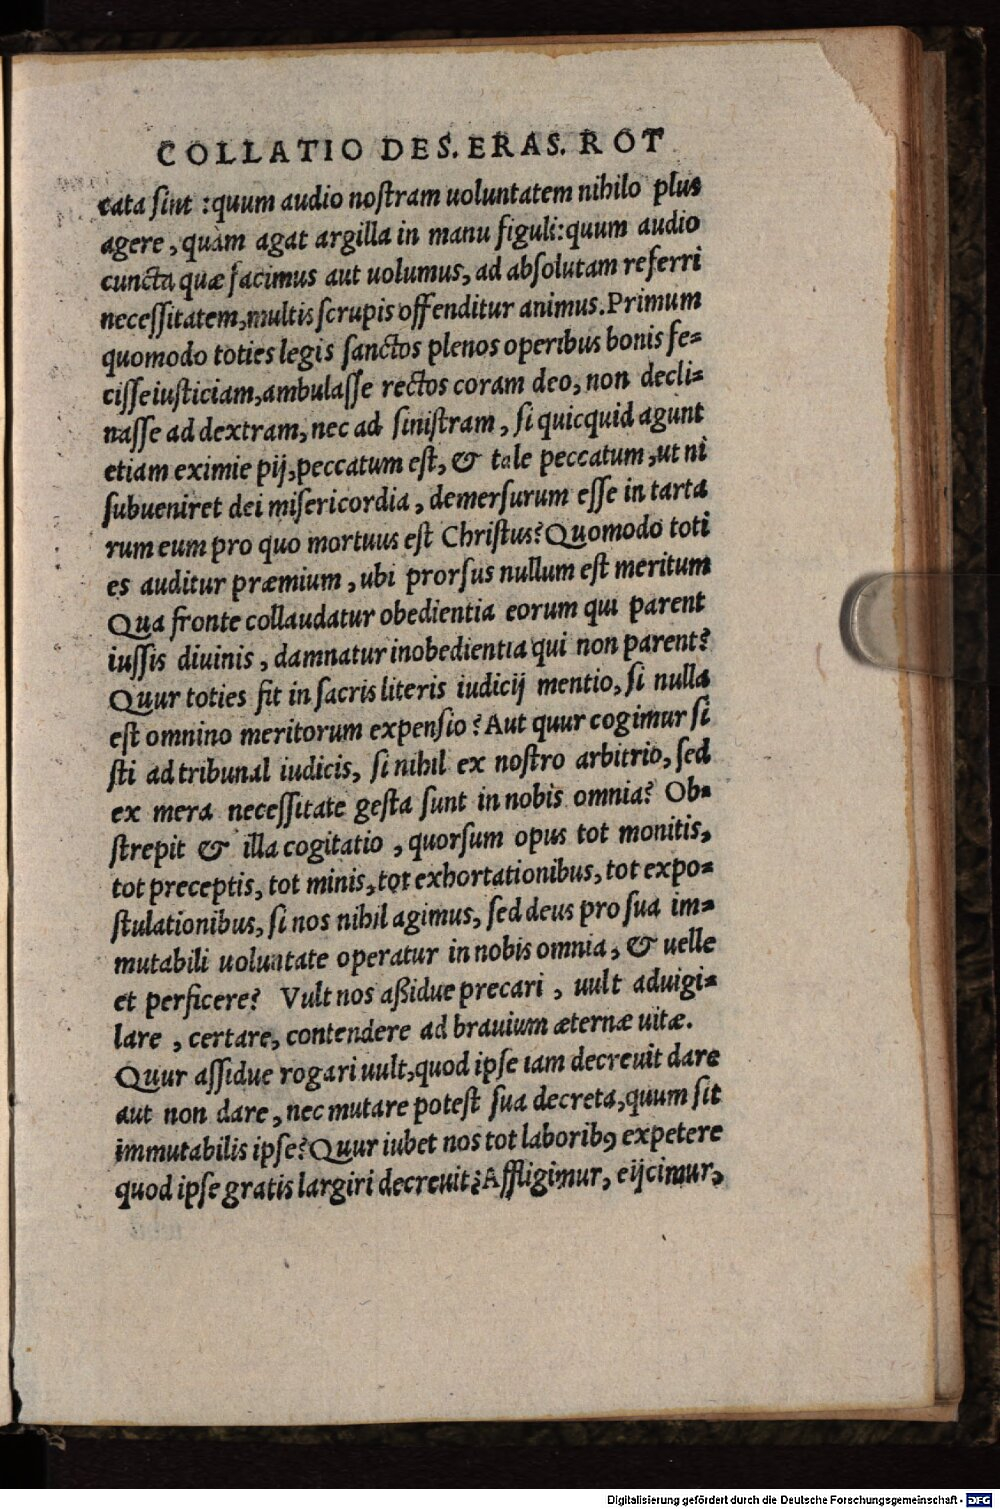 COLLATIO DES. ERAS. ROT
cata sint : quum audio nostram uoluntatem nihilo plus
agere, quàm agat argilla in manu figuli: quum audio
cuncta quæ facimus aut uolumus, ad absolutam referri
necessitatem, multis scrupis offenditur animus. Primum
quomodo toties legis sanctos plenos operibus bonis fe-
cisse iusticiam, ambulasse rectos coram deo, non decli-
nasse ad dextram, nec ad sinistram, si quicquid agunt
etiam eximie pij, peccatum est, & tale peccatum, ut ni
subueniret dei misericordia, demersurum esse in tarta
rum eum pro quo mortuus est Christus? Quomodo toti
es auditur præmium, ubi prorsus nullum est meritum
Qua fronte collaudatur obedientia eorum qui parent
iussis diuinis, damnatur inobedientia qui non parent?
Quur toties fit in sacris literis iudicij mentio, si nulla
est omnino meritorum expensio? Aut quur cogimur si
sti ad tribunal iudicis, si nihil ex nostro arbitrio, sed
ex mera necessitate gesta sunt in nobis omnia? Ob-
strepit & illa cogitatio, quorsum opus tot monitis,
tot preceptis, tot minis, tot exhortationibus, tot expo-
stulationibus, si nos nihil agimus, sed deus pro sua im-
mutabili uoluntate operatur in nobis omnia, & uelle
et perficere? Vult nos aßidue precari, uult aduigi-
lare, certare, contendere ad brauium æternæ uitæ.
Quur assidue rogari uult, quod ipse iam decreuit dare
aut non dare, nec mutare potest sua decreta, quum sit
immutabilis ipse? Quur iubet nos tot laboribꝰ expetere
quod ipse gratis largiri decreuit? Affligimur, eijcimur,
Digitalisierung gefördert durch die Deutsche Forschungsgemeinschaft - DFG